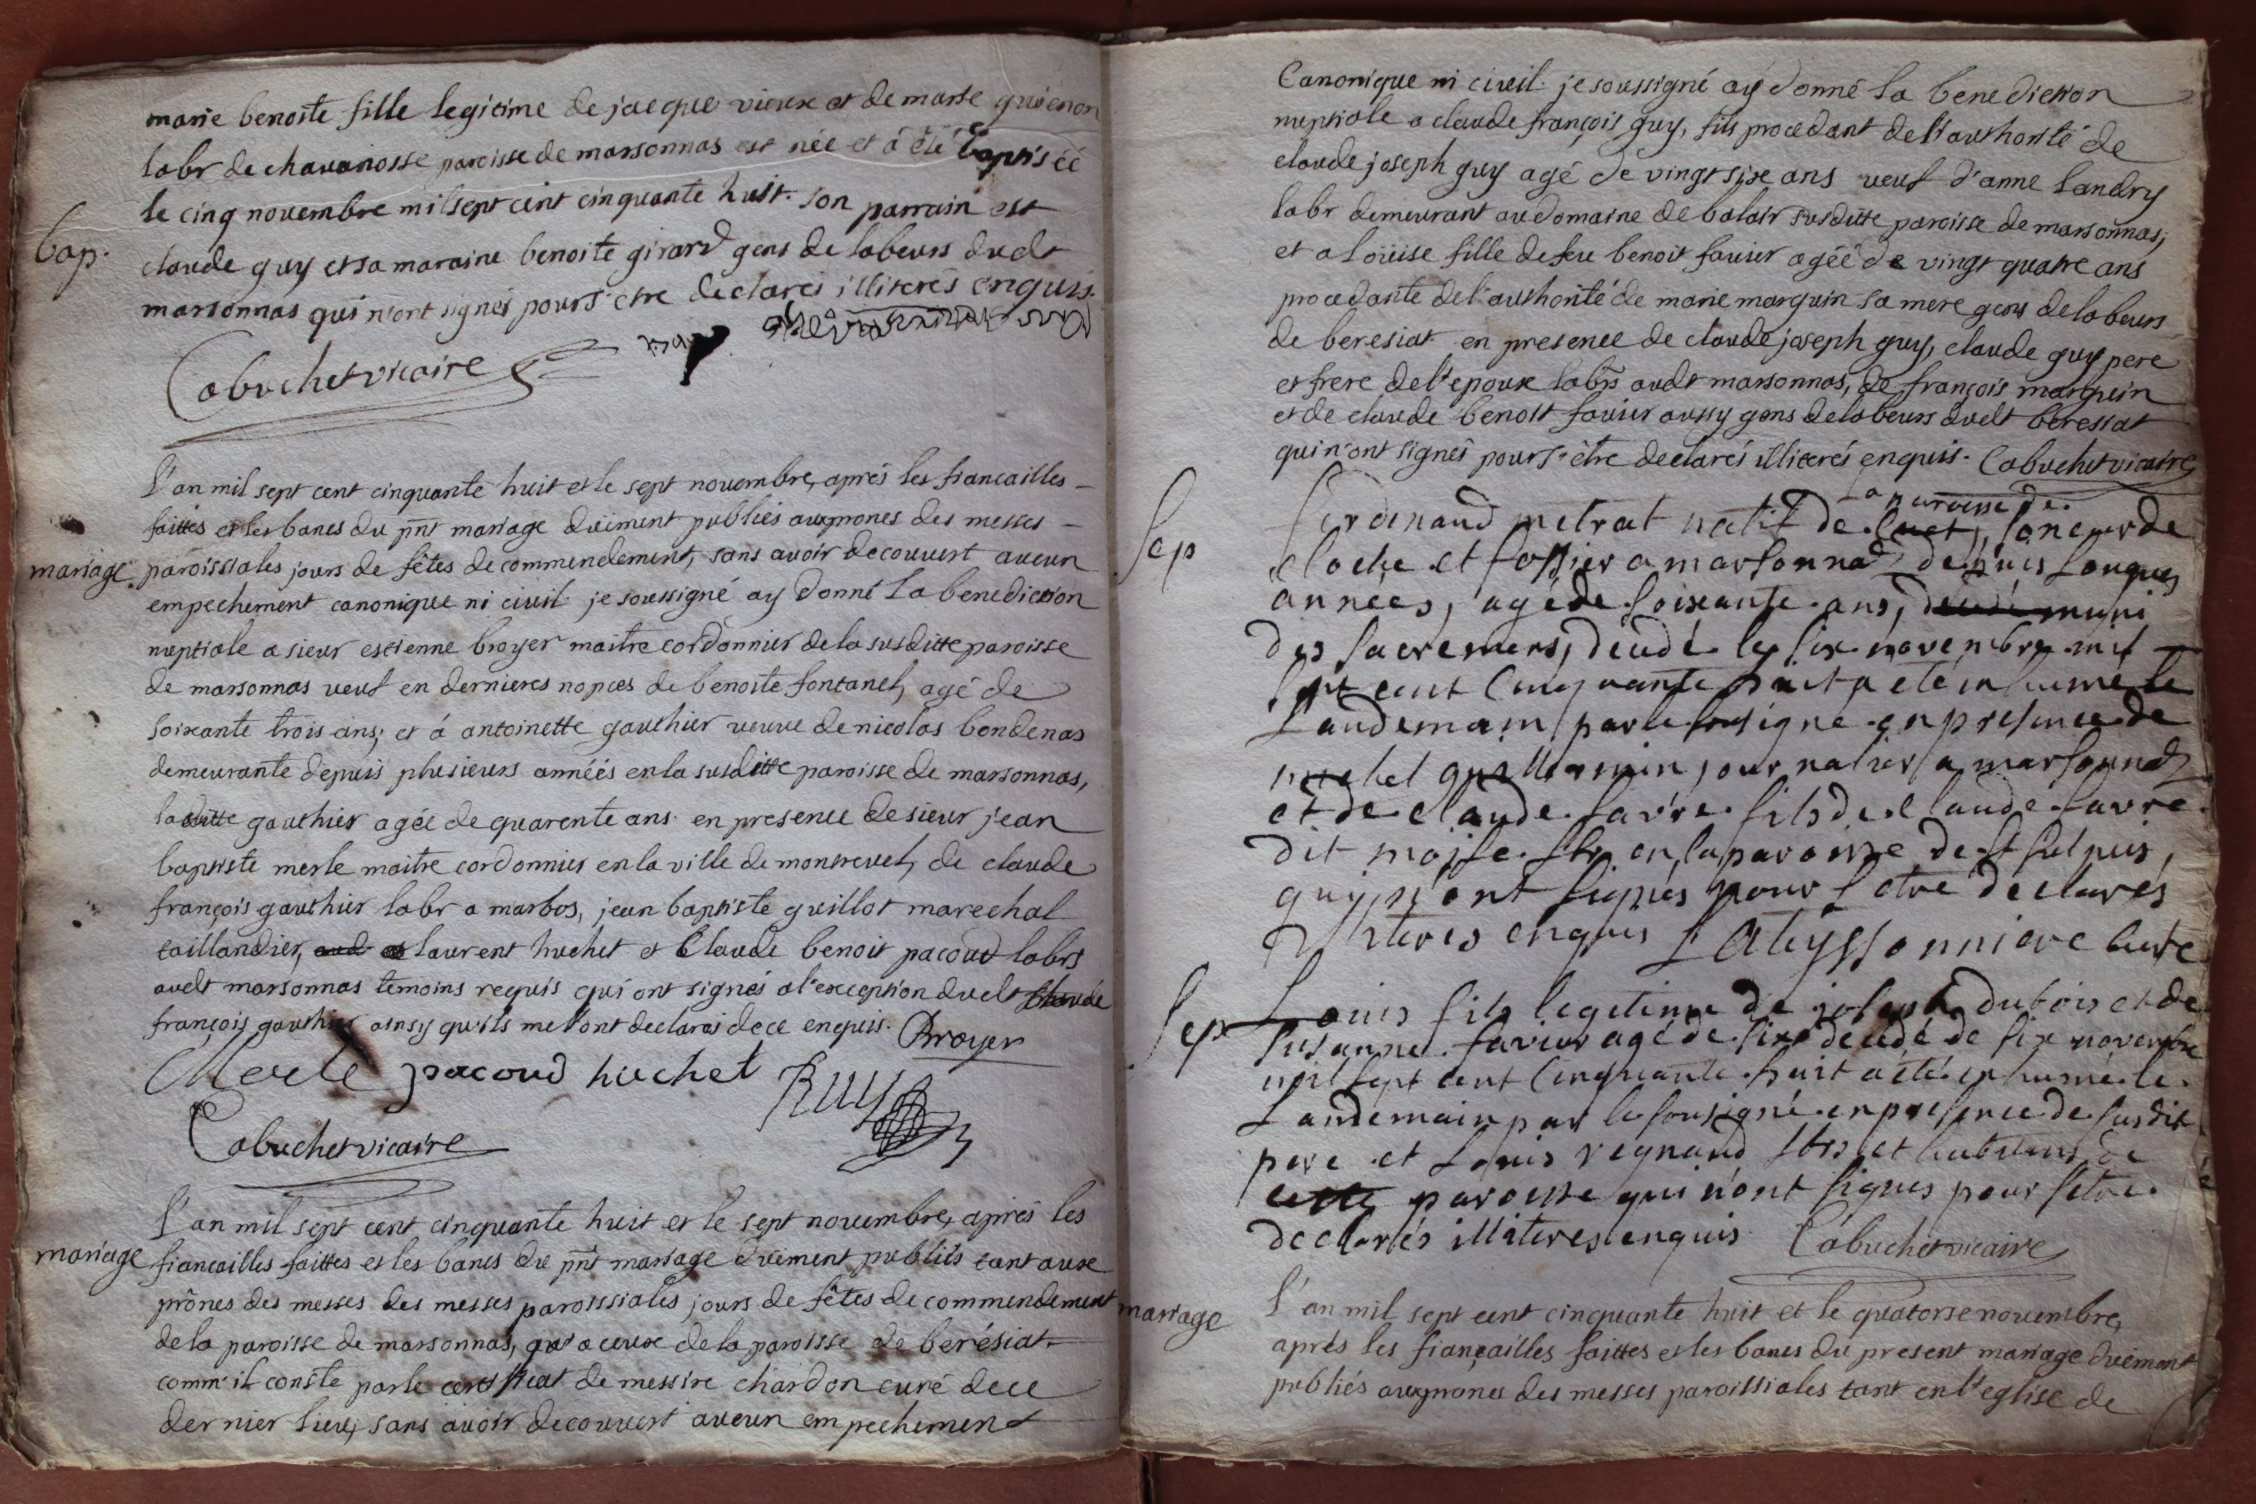 marie benoite fille legitime de jacque vieux et de marie guienon
labr de chavanosse paroisse de marsonnas est née et á été baptisée
bap.
le cinq novembre mil sept cent cinquante huit. son parrain est
claude guy et sa maraine benoite girard gens de labeurs dudt
marsonnas qui n'ont signés pours'etre declarés illiterés enquis.
Cabuchet vicaire
L'an mil sept cent cinquante huit et le sept novembre, aprés les fiancailles
faittes et les bancs du pñt mariage düement publiés aux prones des messes
mariage
paroissiales jours de fêtes de commendement, sans avoir decouvert aucun
empechement canonique ni civil je soussigné ay donné la benediction
nuptiale a sieur estienne broyer maitre cordonnier de la susditte paroisse
de marsonnas veuf en dernieres nopces de benoite fontanel, agé de
soixante trois ans, et á antoinette gauthier veuve de nicolas bondenas
demeurante depuis plusieurs années en la susditte paroisse de marsonnas,
laditte gauthier agée de quarente ans en presence de sieur jean
baptiste merle maitre cordonnier en la ville de montrevel, de claude
françois gauthier labr a marbos, jean baptiste guillot marechal
taillandier, laurent huchet et Claude benoit pacoud labrs
audt marsonnas temoins requis qui ont signés a l'exception dudt claude
françois gauthier ainsy qu'ils me l'ont declarai de ce enquis. Broyer
Merle pacoud huchet
Cabuchet vicaire
L'an mil sept cent cinquante huit et le sept novembre, aprés les
mariage
fiancailles faittes et les bancs du pñt mariage düement publiés tant aux
prônes des messes des messes paroissiales jours de fêtes de commendement
de la paroisse de marsonnas, qu'a ceux de la paroisse de berésiat
comm'il conste par le certificat de messire chardon curé de ce
dernier lieu, sans avoir decouvert aucun empechement
Canonique ni civil je soussigné ay donné la benediction
nuptiale a claude françois guy, fils procedant de l'authorité de
claude joseph guy agé de vingt six ans veuf d'anne landry
labr demeurant au domaine de balair susditte paroisse de marsonnas,
et a loüise fille de feu benoit favier agée de vingt quatre ans
procedante de l'authorité de marie marguin sa mere gens de labeurs
de beresiat en presence de claude joseph guy, claude guy pere
et frere de l'epoux labrs audt marsonnas, de françois marguin
et de claude benoit favier aussy gens de labeurs dudt beressat
qui n'ont signés pours'être declarés illiterés enquis. Cabuchet vicaire
sep
ferdinand metrat natif de la paroisse de, soneur de
cloche et fossier a marsonnas, depuis longues
années, agé de soixante ans, muni
des sacremens, decedé le six novembre mil
sept cent cinquante huit a eté inhumé le
Landemain par le sousigné en presence de
michel guillermin journalier a marsonnas
et de claude favre fils de claude favre
dit moisse lbr en la paroisse de st sulpuis,
quy n'ont signés pour s'etre déclarés
illiterés enquis Lateyssonniere curé
sep
Louis fils legitime de joseph dubois et de
susanne favier agé de six decedé de six novembre
mil sept cent cinquante huit a été inhumé le
Landemain par le sousigné en presence de susdit
pere et Louis regnaud lbrs et habitans de
cette paroisse qui n'ont signés pour s'etre
declarés illiteres enquis Cabuchet vicaire
mariage
L'an mil sept cent cinquante huit et le quatorse novembre,
aprés les fiançailles faittes et les bancs du present mariage düement
publiés aux prones des messes paroissiales tant en l'eglise de